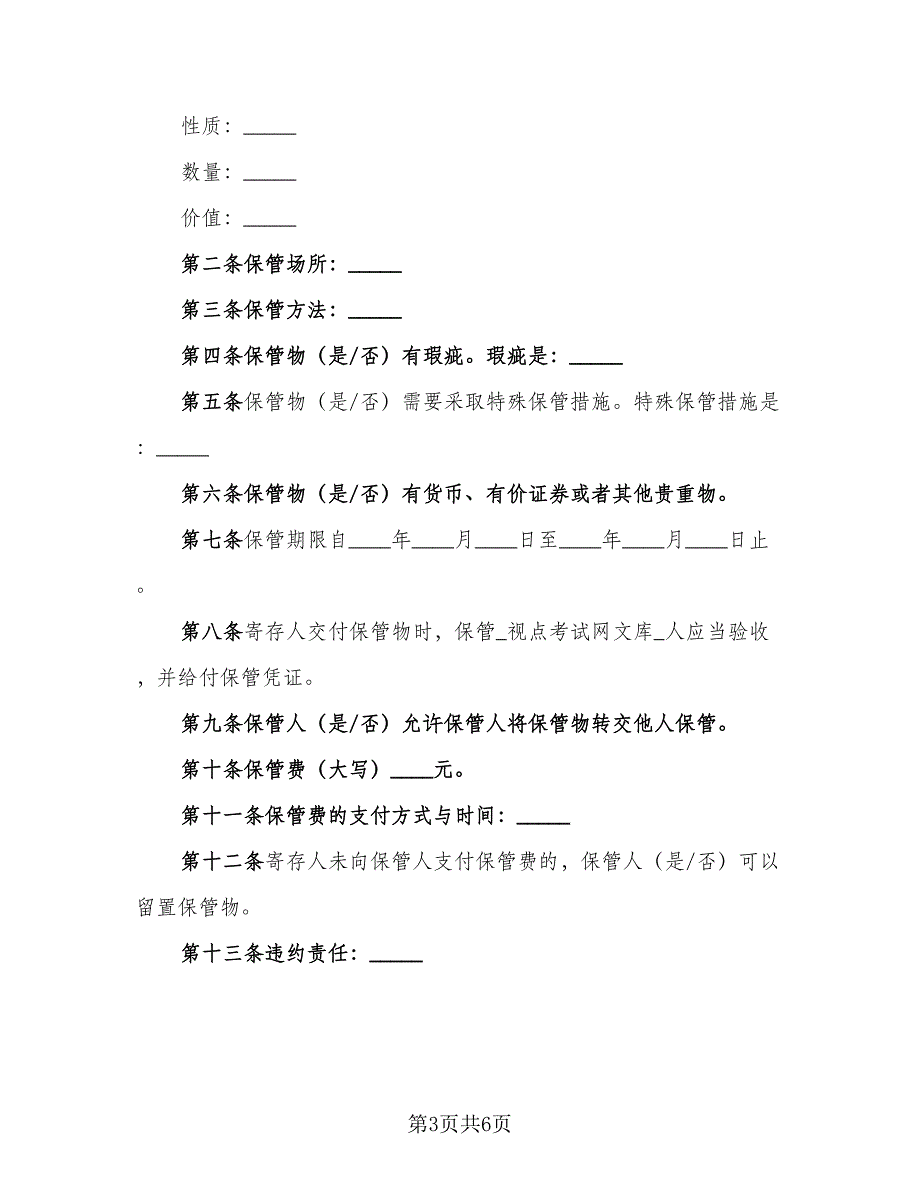 性质：_____
数量：_____
价值：_____
第二条保管场所：_____
第三条保管方法：_____
第四条保管物（是/否）有瑕疵。瑕疵是：_____
第五条保管物（是/否）需要采取特殊保管措施。特殊保管措施是
：_____
第六条保管物（是/否）有货币、有价证券或者其他贵重物。
第七条保管期限自____年____月____日至____年____月____日止
。
第八条寄存人交付保管物时，保管_视点考试网文库_人应当验收
，并给付保管凭证。
第九条保管人（是/否）允许保管人将保管物转交他人保管。
第十条保管费（大写）____元。
第十一条保管费的支付方式与时间：_____
第十二条寄存人未向保管人支付保管费的，保管人（是/否）可以
留置保管物。
第十三条违约责任：_____
第3页共6页